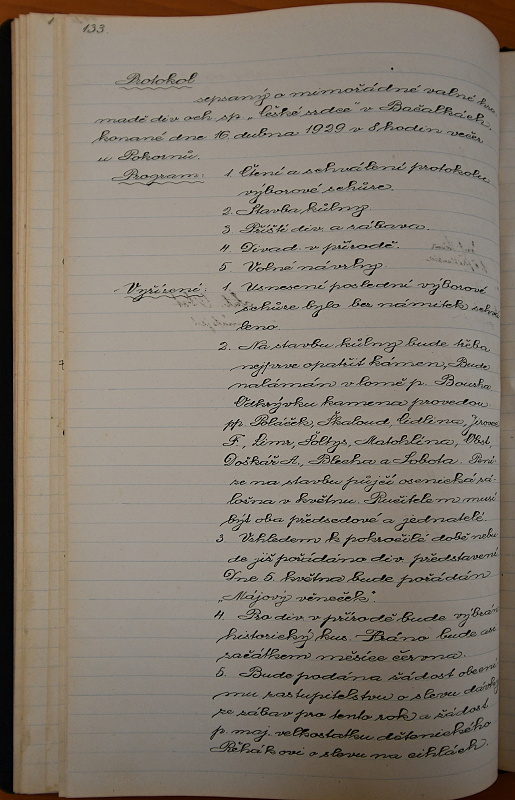 133.
Protokol
sepsaný o mimořádné valné hro
madě div. och. sp. „České srdce“ v Bačalkách,
konané dne 16 dubna 1929 v 8 hodin večer
u Pokornů.
Program: 1. Čtení a schválení protokolu
výborové schůze.
2. Stavba kůlny
3. Příští div. a zábava.
4. Divad. v přírodě.
5. Volné návrhy.
Vyřízení: 1. Usnesení poslední výborové
schůze bylo bez námitek schvá
leno.
2. Na stavbu kůlny bude třeba
nejprve opatřit kámen. Bude
nalámán v lomě p. Bouška
Odkrývku kamena provedou
pp. Poláček, Škaloud, Cidlina, Jirovec
F., Šoltys, Matohlína,
Doškář A., Blecha a Sobota. Pení-
ze na stavbu půjčí osenická zá-
ložna v květnu. Ručitelem musí
být oba předsedové a jednatelé.
3. Vzhledem k pokročilé době nebu
de již pořádáno div. představení
Dne 5. května bude pořádán
„Májový věneček“.
4. Pro div. v přírodě bude vybrán
historický kus. Hráno bude asi
začátkem měsíce června.
5. Bude podána žádost obecní
mu zastupitelstvu o slevu dávky
ze zábav pro tento rok a žádost
p. maj. velkostatku dětenického
Řehákovi o slevu na cihlách.